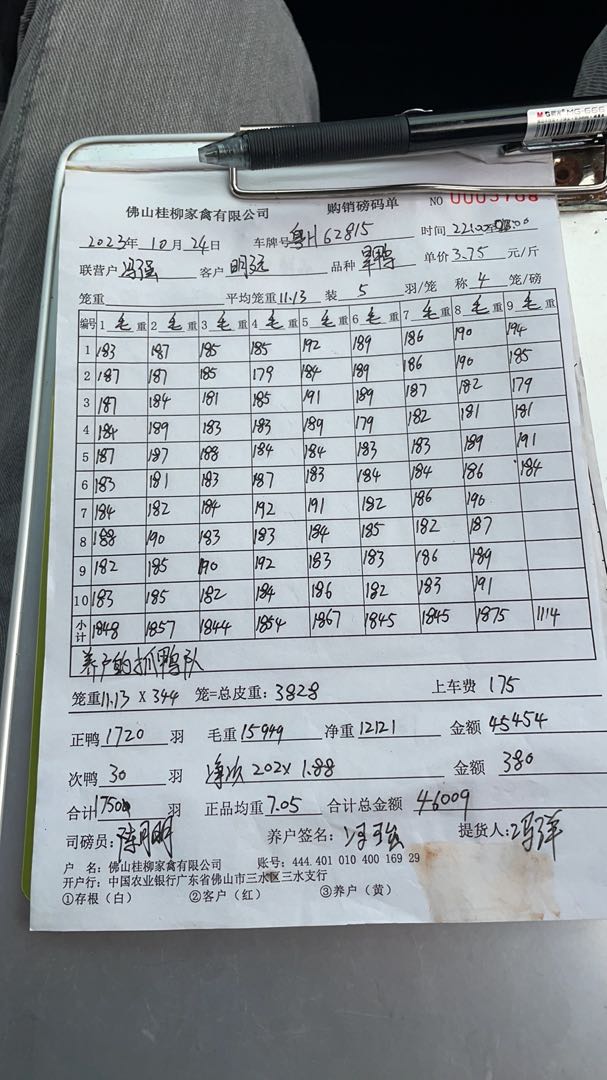 M&G 晨光 MG-666
佛山桂柳家禽有限公司 购销磅码单 NO 0003768
2023年 10月 24日 车牌号 粤H62815 时间 22:00至
联营户 冯强 客户 明远 品种 单价 3.75 元/斤
笼重 平均笼重 11.13 装 5 羽/笼 称 4 笼/磅
编号 1 毛 重 2 毛 重 3 毛 重 4 毛 重 5 毛 重 6 毛 重 7 毛 重 8 毛 重 9 毛 重
1 183 187 185 185 192 189 186 190 194
2 187 187 185 179 184 189 186 190 185
3 187 184 181 185 191 189 187 182 179
4 184 189 183 183 189 179 182 181 181
5 187 187 188 184 184 183 183 189 191
6 183 181 183 187 183 184 184 186 184
7 184 182 184 192 191 182 186 190
8 188 190 183 183 184 185 182 187
9 182 185 190 192 183 183 186 189
10 183 185 182 184 186 182 183 191
小计 1848 1857 1844 1854 1867 1845 1845 1875 1114
养户的抓鸭队
笼重 11.13 X 344 笼=总皮重: 3828 上车费 175
正鸭 1720 羽 毛重 15949 净重 12121 金额 45454
次鸭 30 羽 净次 202X 1.88 金额 380
合计 1750 羽 正品均重 7.05 合计总金额 46009
司磅员: 陈月明 养户签名: 冯强 提货人: 冯洋
户 名: 佛山桂柳家禽有限公司 账号: 444 401 010 400 169 29
开户行: 中国农业银行广东省佛山市三水区三水支行
①存根（白） ②客户（红） ③养户（黄）